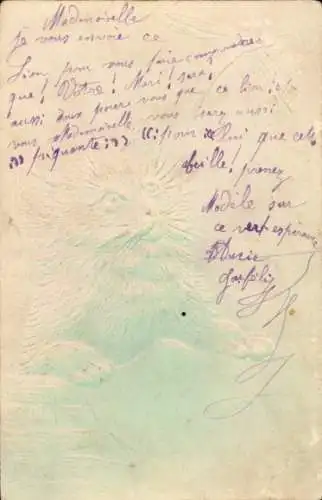 Mademoiselle
je vous envoie ce
Lion pour vous faire comprendre
que! Votre! Mari! sera!
aussi doux pour vous que ce lion et
vous Mademoiselle, vous serez aussi
piquante pour lui que cette
abeille! prenez
Modèle sur
ce vert espérance